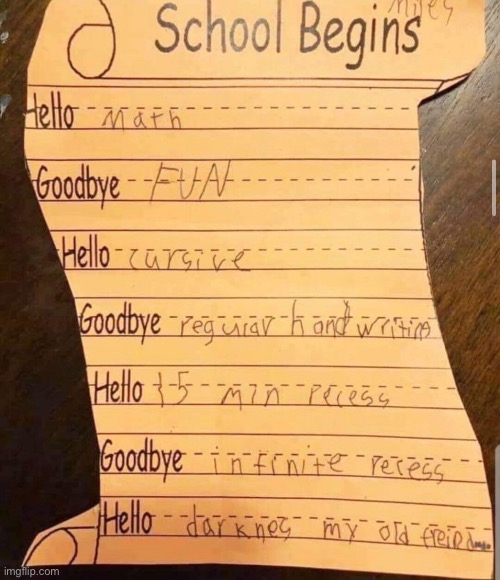 Miles
School Begins
Hello Math
Goodbye FUN
Hello cursive
Goodbye regular handwriting
Hello 15 min recess
Goodbye infinite recess
Hello darknes my old freind
imgflip.com